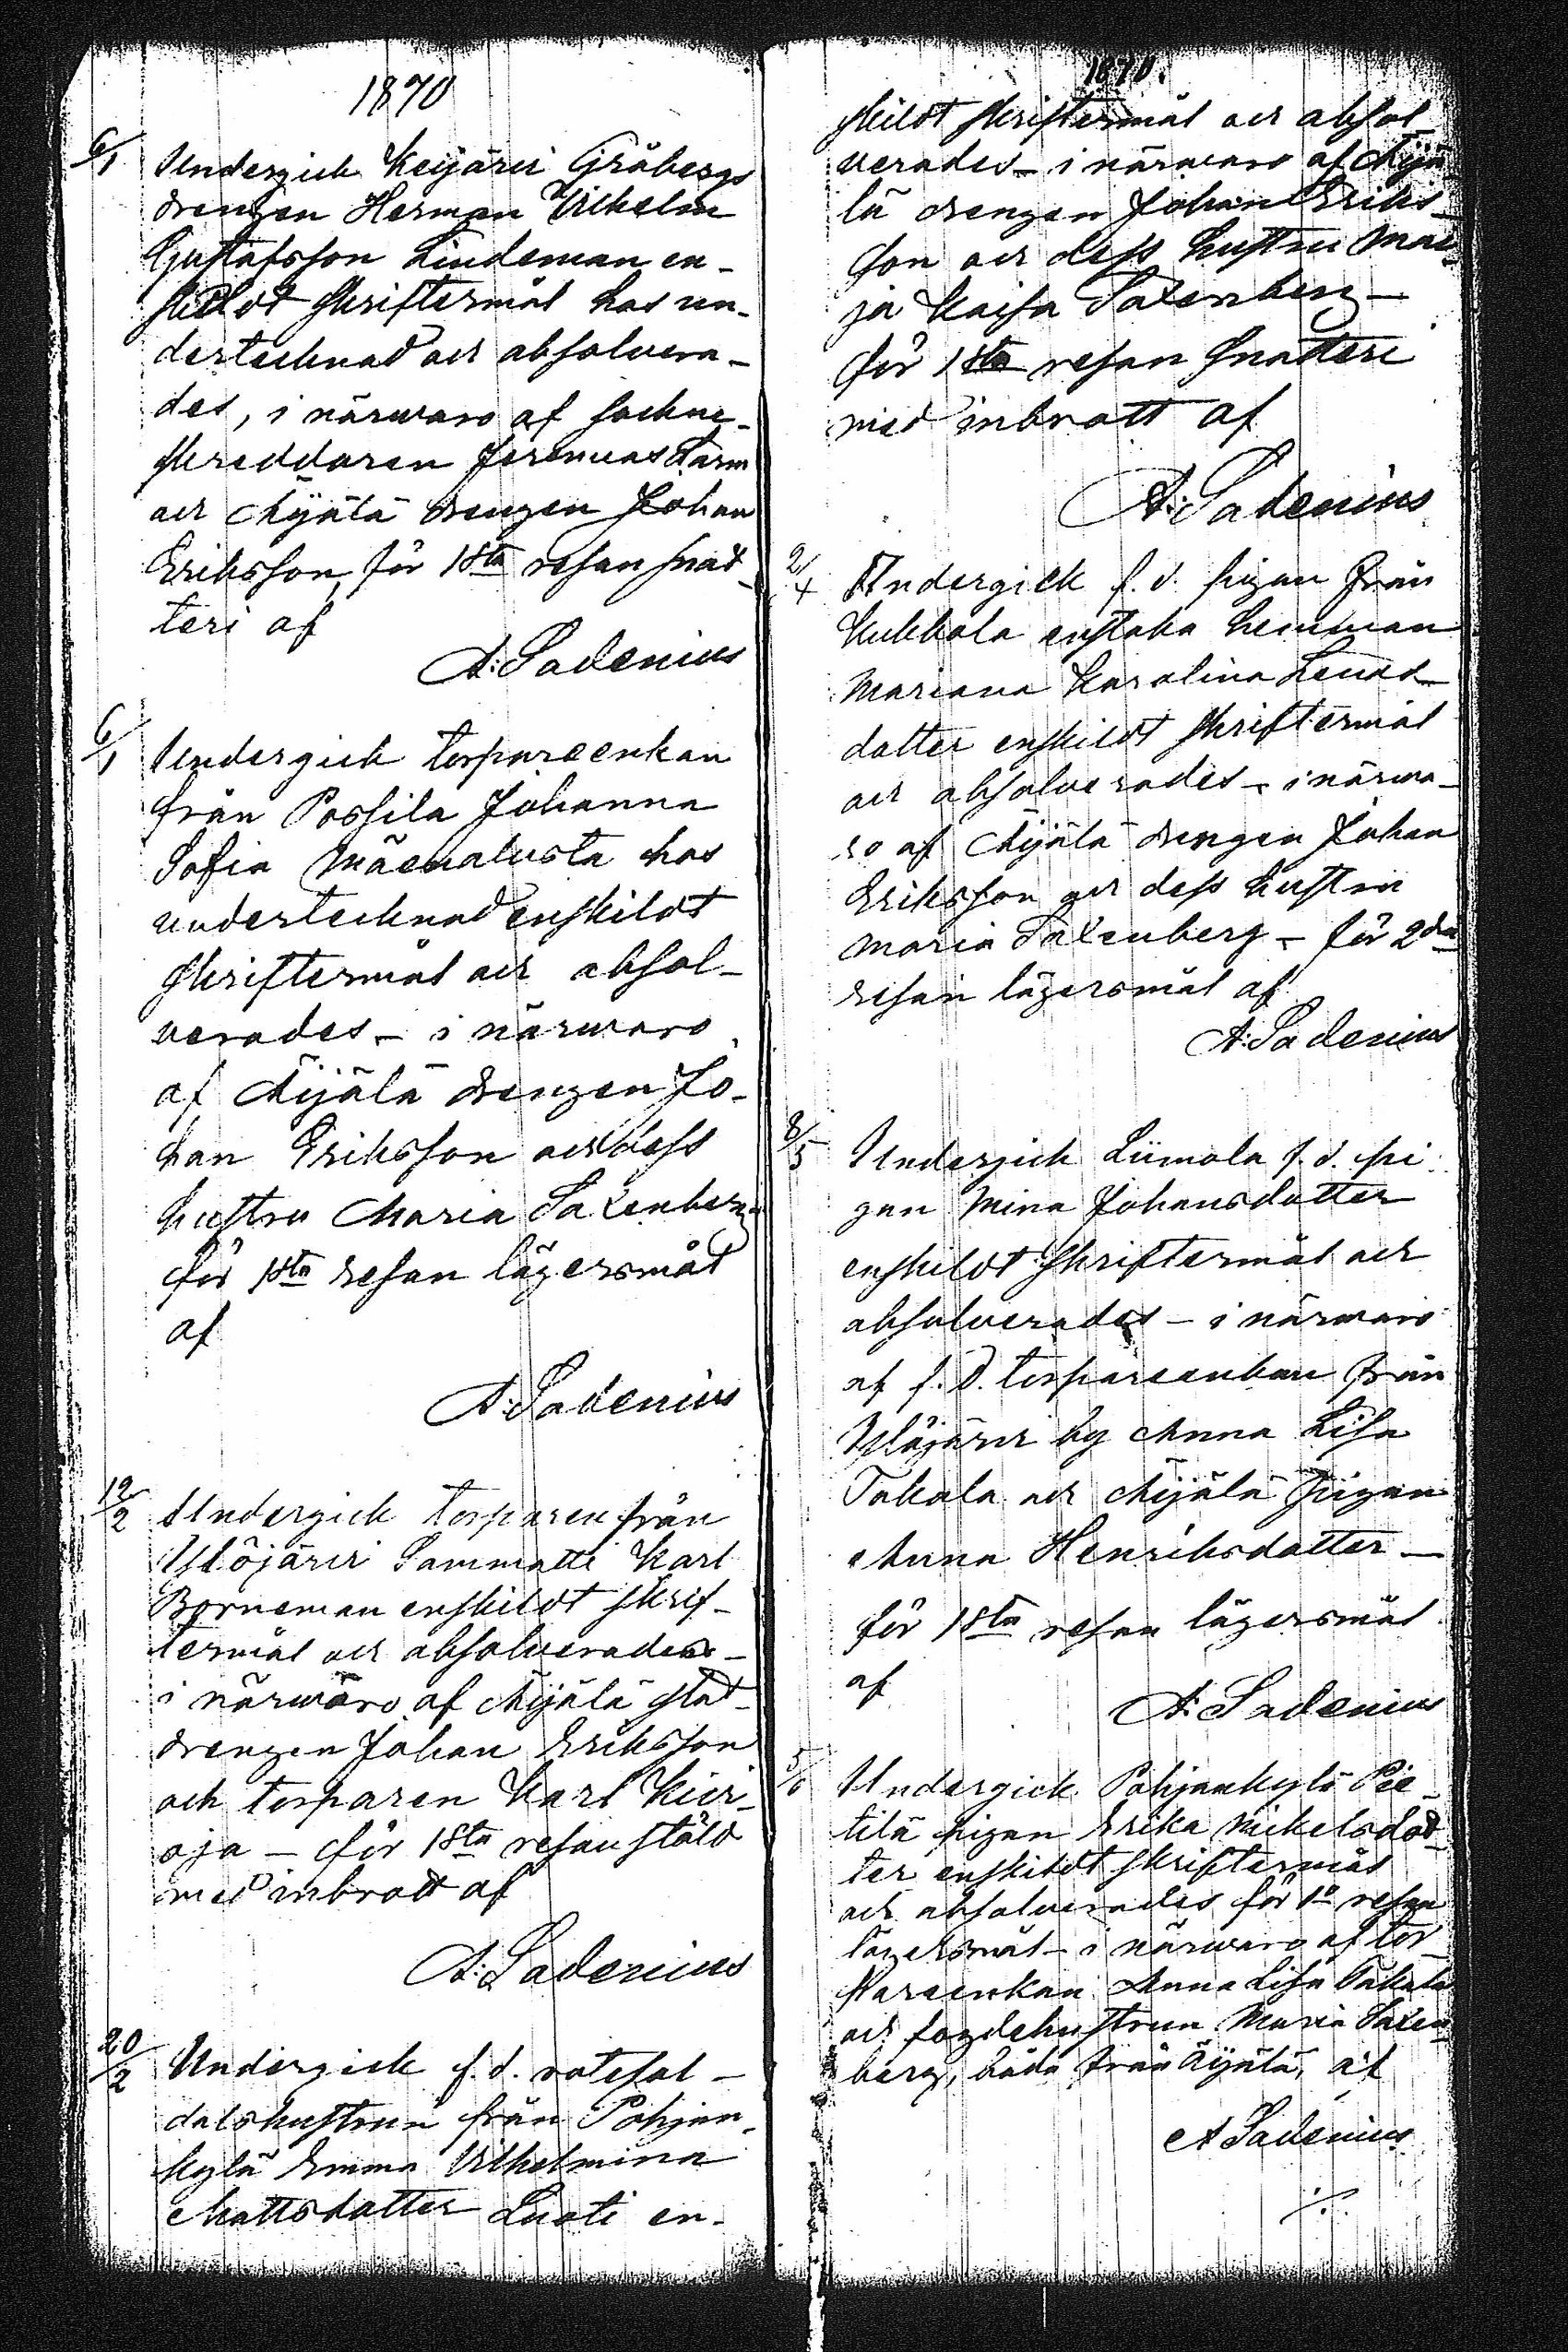 1870
6/1 Undergick Keijärvi Gråbergs
drengen Herman Vilhelm
Gustafsson Lindeman en-
skildt skriftermål hos un-
dertecknad och absolvera-
des, i närwaro af sockne-
skreddaren Jeremias Farm
och Äijälä drengen Johan
Eriksson, för 1sta resan snat-
teri af
A: Sadenius
6/1 Undergick torpareenkan
från Possila Johanna
Sofia Mäenalusta hos
undertecknad enskildt
skriftermål och absol-
verades - i närwaro
af Äijälä drengen Jo-
han Eriksson och dess
hustru Maria Saxenberg
för 1sta resan lägersmål
af
A: Sadenius
12/2 Undergick torparen från
Ylöjärvi Sammatti Karl
Borneman enskildt skrif-
termål och absolverades -
i närwaro af Äijälä stat-
drengen Johan Eriksson
och torparen Karl Kier-
oja - för 1sta resan stöld
med inbrott af
A: Sadenius
20/2 Undergick f.d. rotesol-
datshustrun från Pohjan-
kylä Emma Vilhelmina
Mattsdotter Luoti en-
1870.
skildt skriftermål och absol-
verades - i närwaro af Äijä-
lä drengen Johan Eriks-
son och dess hustru Mar-
ja Kaisa Saxenberg -
för 1sta resan snatteri
med inbrott af
A: Sadenius
2/4 Undergick f.d. pigan från
Kukkola enstaka hemman
Mariana Karolina Lenas-
dotter enskildt skriftermål
och absolverades - i närwa-
ro af Äijälä drengen Johan
Eriksson och dess hustru
Maria Saxenberg - för 2dra
resan lägersmål af
A: Sadenius
8/5 Undergick Liimola f.d. pi-
gan Mina Johansdotter
enskildt skriftermål och
absolverades - i närwaro
af f.d. torpareenkan från
Ylöjärvi by Anna Lisa
Takala och Äijälä pigan
Anna Henriksdotter -
för 1sta resan lägersmål
af
A: Sadenius
5/6 Undergick Pohjankylä Pie-
tilä pigan Erika Mickelsdot-
ter enskildt skriftermål
och absolverades för 1a resan
lägersmål - i närwaro af tor-
pareenkan Anna Lisa Takala
och fogdehustrun Maria Saxen-
berg, båda från Äijälä, af
A Sadenius